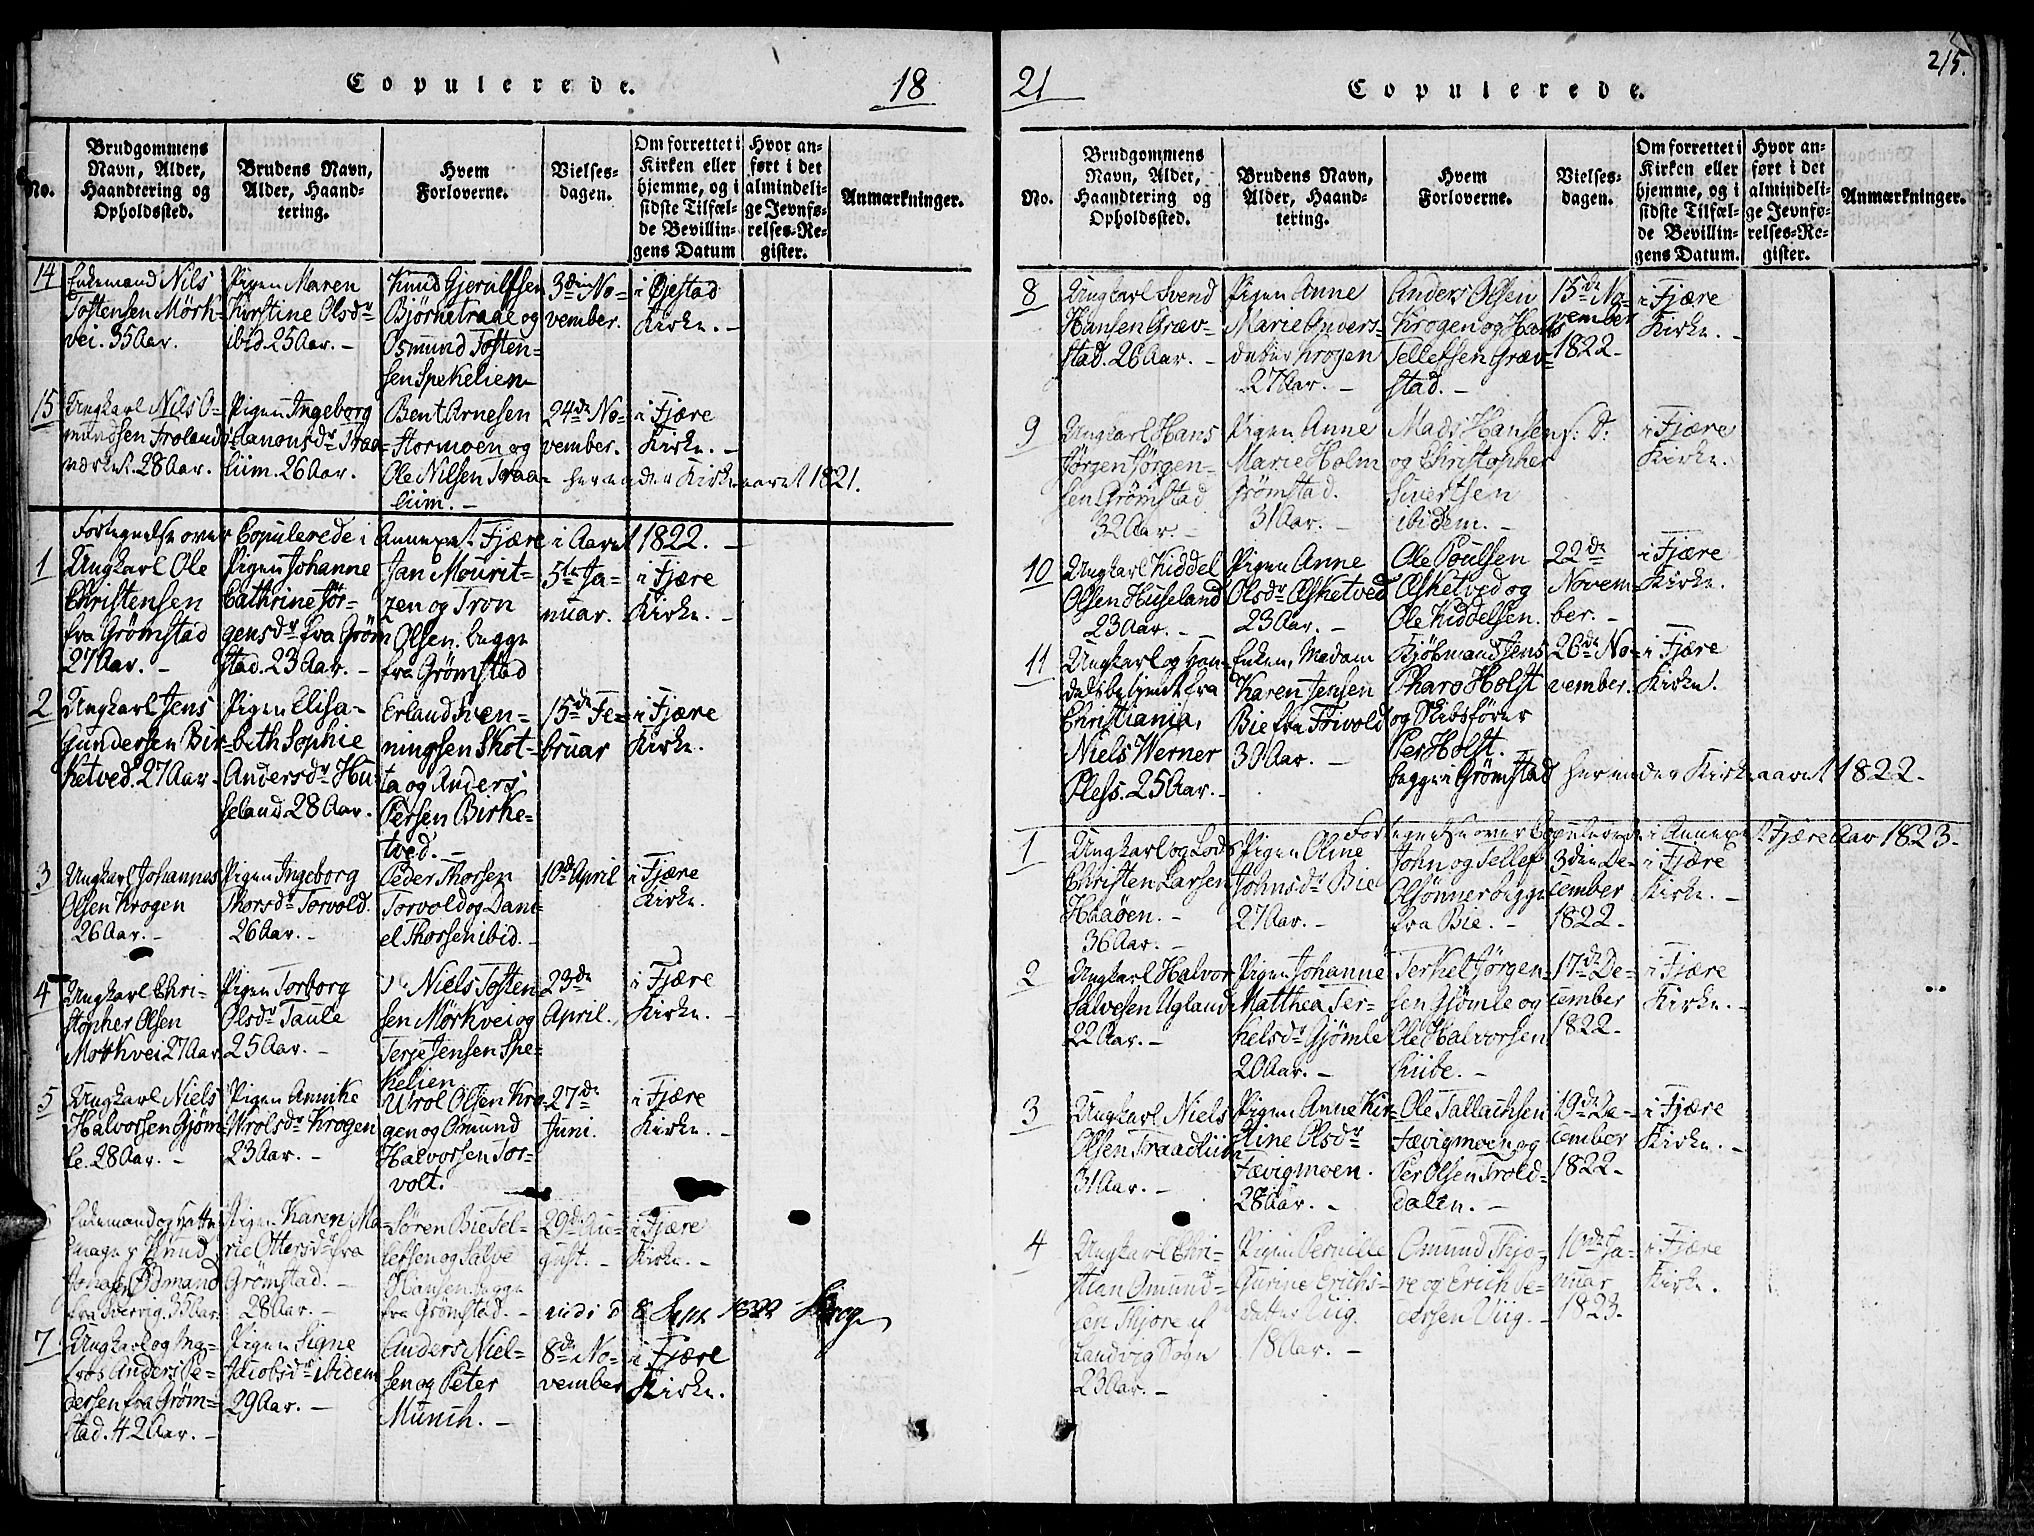 Copulerede.
18
No.
Brudgommens
Navn, Alder,
Haandtering og
Opholdssted.
Brudens Navn,
Alder, Haand-
tering.
Hvem
Forloverne.
Vielses-
dagen.
Om forrettet i
Kirken eller
hjemme, og i
sidste Tilfæl-
de Bevillin-
gens Datum
Hvor an-
ført i det
almindeli-
ge Jevnfø-
relses-Re-
gister.
Anmærkninger.
14
Enkemand Nils
Tostensen Mörk-
vei. 35 Aar.
Pigen Maren
Kirstine Olsdr
ibid 25 Aar. –
Knud Gjerulfsen
Björnetraae og
Osmund Tosten-
sen Spekelien
3die No-
vember.
i Øiestad
Kirke. –
15
Ungkarl Nils O-
mundsen Frolands
værket. 28 Aar.
Pigen Ingeborg
Aanonsdr Traa-
liim. 26 Aar.
Bent Arnesen
Stormoen og
Ole Nilsen Traa-
liim. –
24de No-
vember.
i Fjære
Kirke. –
her ender Kirkeaaret 1821.
Fortegnelse over Copulerede i Annexet Fjære i Aaret 1822. –
1
Ungkarl Ole
Christensen
fra Grömstad
27 Aar. –
Pigen Johanne
Cathrine Jör-
gensdr fra Gröm
stad. 23 Aar. –
Jan Mourit-
zen og Tron
Olsen. begge
fra Grömstad
5te Ja-
nuar.
i Fjære
Kirke. –
2
Ungkarl Jens
Gundersen Bir-
ketved. 27 Aar.
Pigen Elisa-
beth Sophie
Andersdr Hu-
seland 28 Aar.
Erland Sven-
ningsen Skot-
ta og Anders
Persen Birke-
tved. –
15de Fe-
bruar
i Fjære
Kirke.
3
Ungkarl Johannes
Olsen Krogen
26 Aar. –
Pigen Ingeborg
Thorsdr Torvold.
26 Aar. –
Peder Thorsen
Torvold og Dani-
el Thorsen ibid. –
10de April
i Fjære
Kirke.
4
Ungkarl Chri-
stopher Olsen
Mörkvei 27 Aar
Pigen Torborg
Olsdr Taule
25 Aar. –
Niels Tosten
sen Mörkvei og
Terje Jensen Spe-
kelien
23de
April.
i Fjære
Kirke. –
5
Ungkarl Niels
Halvorsen Gjöm-
le. 28 Aar. –
Pigen Annike
Wrolsdr Krogen
23 Aar. –
Wrol Olsen Kro-
gen og Omund
Halvorsen Tor-
volt.
27de
Juni.
i Fjære
Kirke. –
6
Enkemand og Hatte
mager Knud
fra 35 Aar
Pigen Karen Ma-
rie Ottersdr fra
Grömstad. –
28 Aar. –
Sören Bie Tel-
lefsen og Salve
Hansen. begge
fra Grömstad. –
29de Au-
gust. –
i Fjære
Kirke. –
8 Sept 1822
7
Ungkarl og Ma-
tros Anders Pe-
dersen fra Gröm-
stad. 42 Aar. –
Pigen Signe
Jacobsdr ibidem
29 Aar. –
Anders Niel-
sen og Peter
Münch. –
8de No-
vember
i Fjære
Kirke.
21
Copulerede.
215.
No.
Brudgommens
Navn, Alder,
Haandtering og
Opholdssted.
Brudens Navn,
Alder, Haand-
tering.
Hvem
Forloverne.
Vielses-
dagen.
Om forrettet i
Kirken eller
hjemme, og i
sidste Tilfæl-
de Bevillin-
gens Datum.
Hvor an-
ført i det
almindeli-
ge Jevnfø-
relses-Re-
gister.
Anmærkninger.
8
Ungkarl Svend
Hansen Græv-
stad. 26 Aar. –
Pigen Anne
Marie Anders-
datter Krogen
27 Aar. –
Anders Olsen
Krogen og Hans
Tellefsen Græv-
stad. –
15de No-
vember
1822 –
i Fjære
Kirke. –
9
Ungkarl Hans
Jörgen Jörgen-
sen Grömstad
32 Aar. –
Pigen Anne
Marie Holm
Grömstad.
31 Aar. –
Mads Hansen
og Christopher
Sivertsen
ibidem. –
s: D:
i Fjære
Kirke.
10
Ungkarl Kiddel
Olsen Huseland
23 Aar. –
Pigen Anne
Olsdr Æsketved
23 Aar. –
Ole Poulsen
Æsketved og
Ole Kiddelsen.
22de
Novem-
ber. –
i Fjære
Kirke.
11
Ungkarl og Han-
delsbetjent fra
Christiania,
Niels Werner
Pless. 25 Aar. –
Enken, Madam
Karen Jensen
Bie fra Torvold
30 Aar. –
Kjöbmand Jens
Pharo Holst
og Skibsförer
Per Holst. –
begge i Grömstad
26de No-
vember.
i Fjære
Kirke.
her ender Kirkeaaret 1822 –
Fortegnelse over Copulerede i Annexet Fjære Aar 1823. –
1
Ungkarl og Lods
Christen Larsen
Haaöen. –
36 Aar. –
Pigen Oline
Johnsdr Bie
27 Aar. –
John og Tellef
Olsönner begge
fra Bie. –
3die De-
cember
1822 –
i Fjære
Kirke. –
2
Ungkarl Halvor
Salvesen Ugland
22 Aar. –
Pigen Johanne
Matthea Ter-
kelsdr Gjömle
20 Aar. –
Terkel Jörgen-
sen Gjömle og
Ole Halvorsen
Liibe. –
17de De-
cember
1822 –
i Fjære
Kirke. –
3
Ungkarl Niels
Olsen Traadliim
31 Aar. –
Pigen Anne Kir-
stine Olsdr
Fævigmoen.
28 Aar. –
Ole Tallachsen
Fævigmoen og
Per Olsen Trold-
dalen. –
19de De-
cember
1822 –
i Fjære
Kirke. –
4
Ungkarl Chri-
stian Omund-
sen Thjore af
Landvig Sogn
23 Aar. –
Pigen Pernille
Gurine Erichs-
datter Viig.
18 Aar. –
Omund Thjo-
re og Erich Pe-
dersen Viig. –
10de Ja-
nuar
1823.
i Fjære
Kirke.